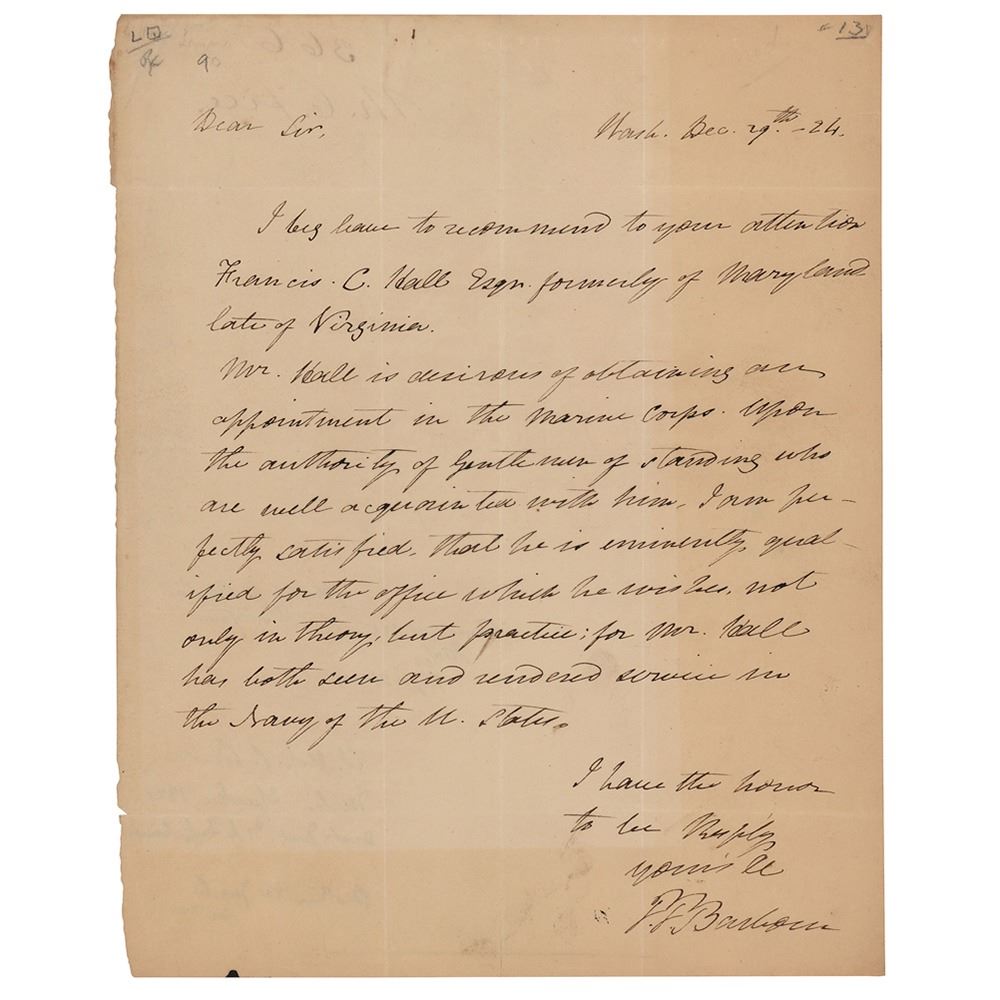 LQ
90
"13"
Dear Sir,
Wash. Dec. 29th - 24.
I beg leave to recommend to your attention
Francis. C. Hall Esqr. formerly of Maryland
late of Virginia.
Mr. Hall is desirous of obtaining an
appointment in the marine corps. Upon
the authority of Gentlemen of standing who
are well acquainted with him, I am per-
fectly satisfied, that he is eminently qual-
ified for the office which he wishes, not
only in theory, but practice; for Mr. Hall
has both seen and rendered service in
the Navy of the U. States.
I have the honor
to be Resply
yours &c
P. P. Barbour